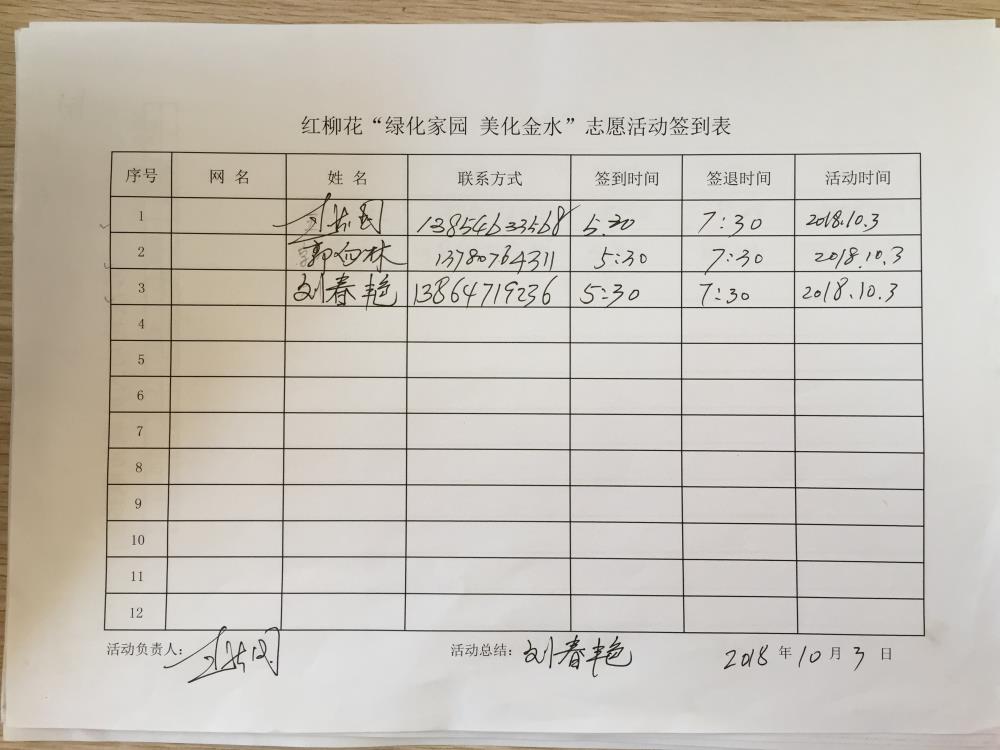 红柳花“绿化家园 美化金水”志愿活动签到表
序号 网 名 姓 名 联系方式 签到时间 签退时间 活动时间
1 13854633568 5:30 7:30 2018.10.3
2 郭向林 13780764311 5:30 7:30 2018.10.3
3 刘春艳 13864719236 5:30 7:30 2018.10.3
4
5
6
7
8
9
10
11
12
活动负责人: 活动总结: 刘春艳 2018 年 10 月 3 日